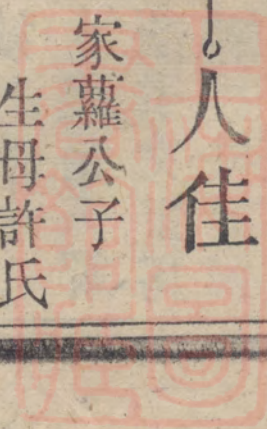 人佳
家蘿公子
生母許氏